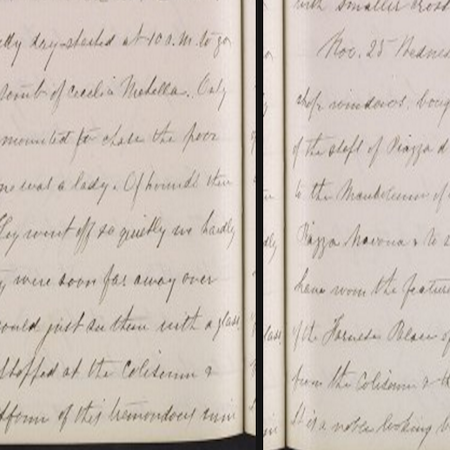 day - started at 10 a.m. to go
tomb of Cecelia Metella. Only
mounted to chase the poor
one was a lady. Of hounds there
They went off so quietly we hardly
were soon far away over
could just see them with a glass
stopped at the Coliseum &
of this tremendous ruin
with smaller
Nov. 25 Wednes
shop windows, boug
of the steps of Piazza d
to the Mausoleum of
Piazza Navona & to s
have worn the feature
of the Farnese Palace of
from the Coliseum & th
It is a noble looking b